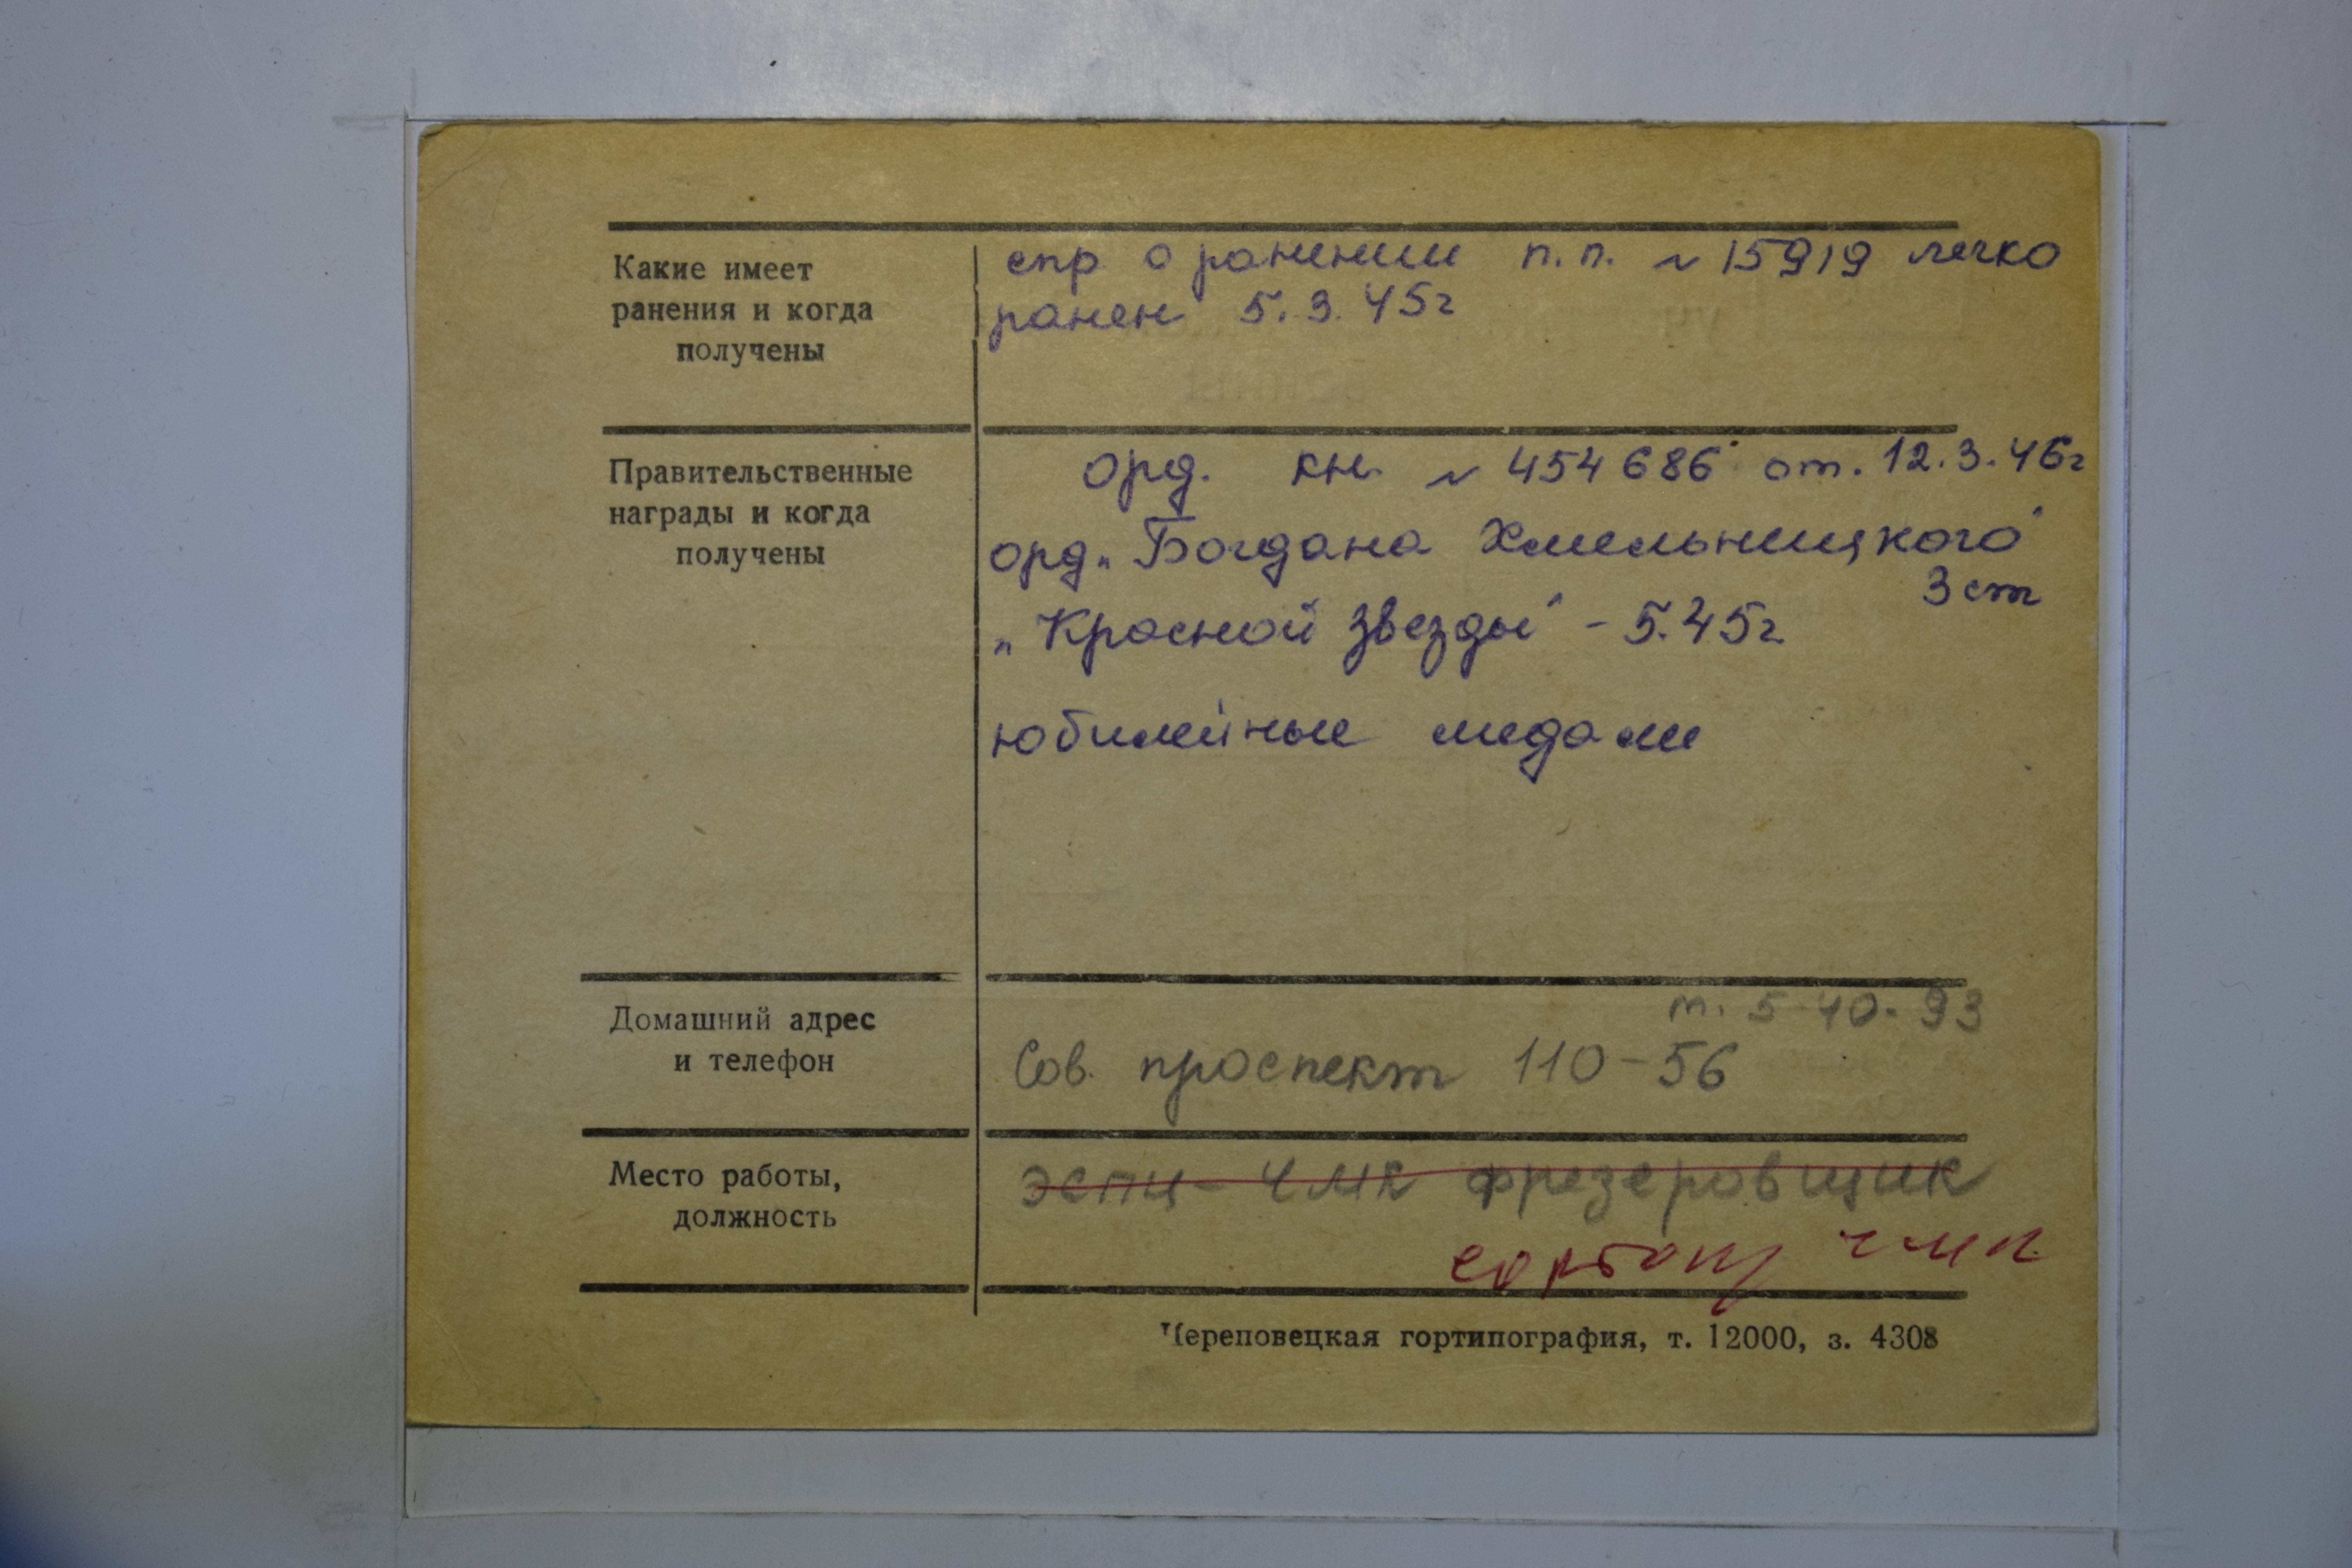 Какие имеет
ранения и когда
получены
спр о ранении п.п. № 15919 легко
ранен 5.3.45г
Правительственные
награды и когда
получены
орд. кн. № 454686 от. 12.3.46г
орд. „Богдана Хмельницкого"
3 ст
„Красной Звезды" - 5.45г
юбилейные медали
Домашний адрес
и телефон
т. 5-40-93
Сов. проспект 110-56
Место работы,
должность
ЭСПЦ - ЧМК фрезеровщик
ЧМК
Череповецкая гортипография, т. 12000, з. 4308